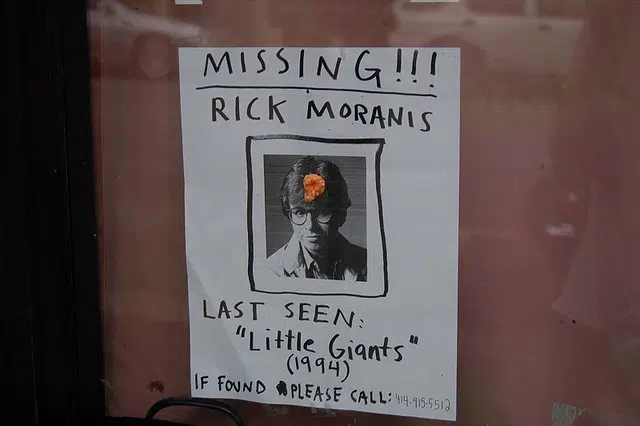 MISSING!!!
RICK MORANIS
LAST SEEN:
"Little Giants"
(1994)
IF FOUND PLEASE CALL: 414-915-5512